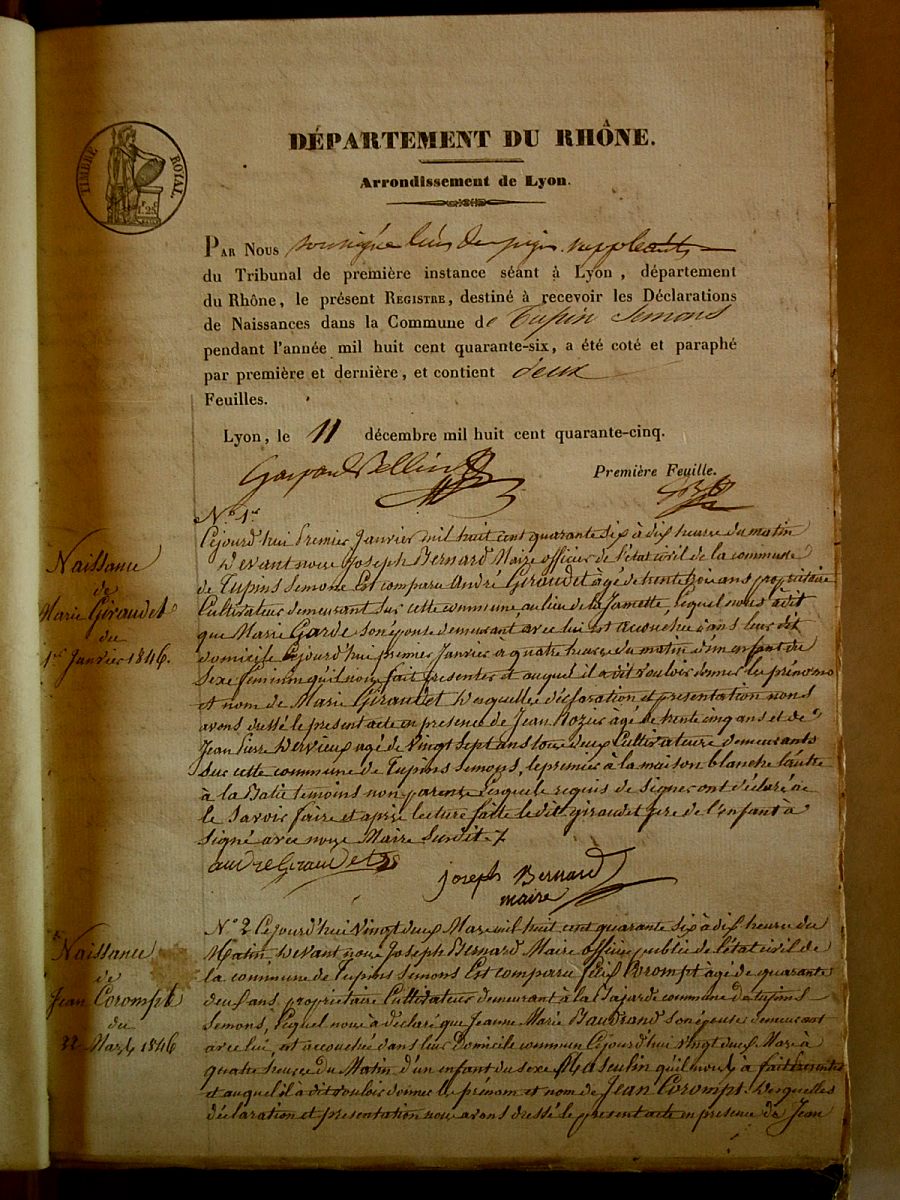 TIMBRE ROYAL
DÉPARTEMENT DU RHÔNE.
Arrondissement de Lyon.
PAR NOUS soussigné
du Tribunal de première instance séant à Lyon, département
du Rhône, le présent REGISTRE, destiné à recevoir les Déclarations
de Naissances dans la Commune de Tupin Semons
pendant l'année mil huit cent quarante-six, a été coté et paraphé
par première et dernière, et contient deux
Feuilles.
Lyon, le 11 décembre mil huit cent quarante-cinq.
Première Feuille.
Naissance
de
Marie Giraudet
du
1er Janvier 1846.
N° 1er
Cejourd'hui Premier Janvier mil huit cent quarante six à dix heures du matin
Devant nous Joseph Bernard Maire officier de l'état civil de la commune
de Tupins Semons Est comparu André Giraudet âgé de trente trois ans propriétaire
Cultivateur demeurant sur cette commune au lieu de la Jamette, lequel nous à dit
que Marie Garde son épouse demeurant avec lui est accouchée dans leur dit
domicile Cejourd'hui premier Janvier a quatre heures du matin d'un enfant du
Sexe féminin qu'il nous fait presenter et auquel il a dit vouloir donner les prénoms
et nom de Marie Giraudet Desquelles déclaration et presentation nous
avons dressé le present acte en presence de Jean Rozier âgé de trente cinq ans et de
Jean Pierre Dervieux agé de Vingt Sept ans tous deux Cultivateurs demeurants
Sur cette commune de Tupins Semons, le premier à la maison blanche l'autre
à la Batie temoins non parents Lesquels requis de Signer ont déclaré ne
le Savoir faire et après lecture faite le dit giraudet pere de l'enfant à
Signé avec nous Maire Susdit
andré Giraudet
joseph Bernard
maire
Naissance
de
Jean Corompt
du
22 Mars 1846
N° 2 Cejourd'hui Vingt deux Mars mil huit cent quarante six à dix heures du
Matin Devant nous Joseph Bernard Maire officier public de l'état civil de
la commune de Tupins Semons Est comparu Corompt âgé de quarante
deux ans, propriétaire Cultivateur demeurant à la commune de tupins
Semons, Lequel nous à déclaré que Jeanne Marie Baudrand son épouse demeurant
avec lui, est accouchée dans leur Domicile commun Cejourd'hui vingt deux Mars à
quatre heures du Matin d'un enfant du sexe Masculin qu'il nous à fait présenter
et auquel il à dit vouloir donner le prénom et nom de Jean Corompt. Desquelles
déclaration et présentation nous avons dressé le present acte en presence de Jean